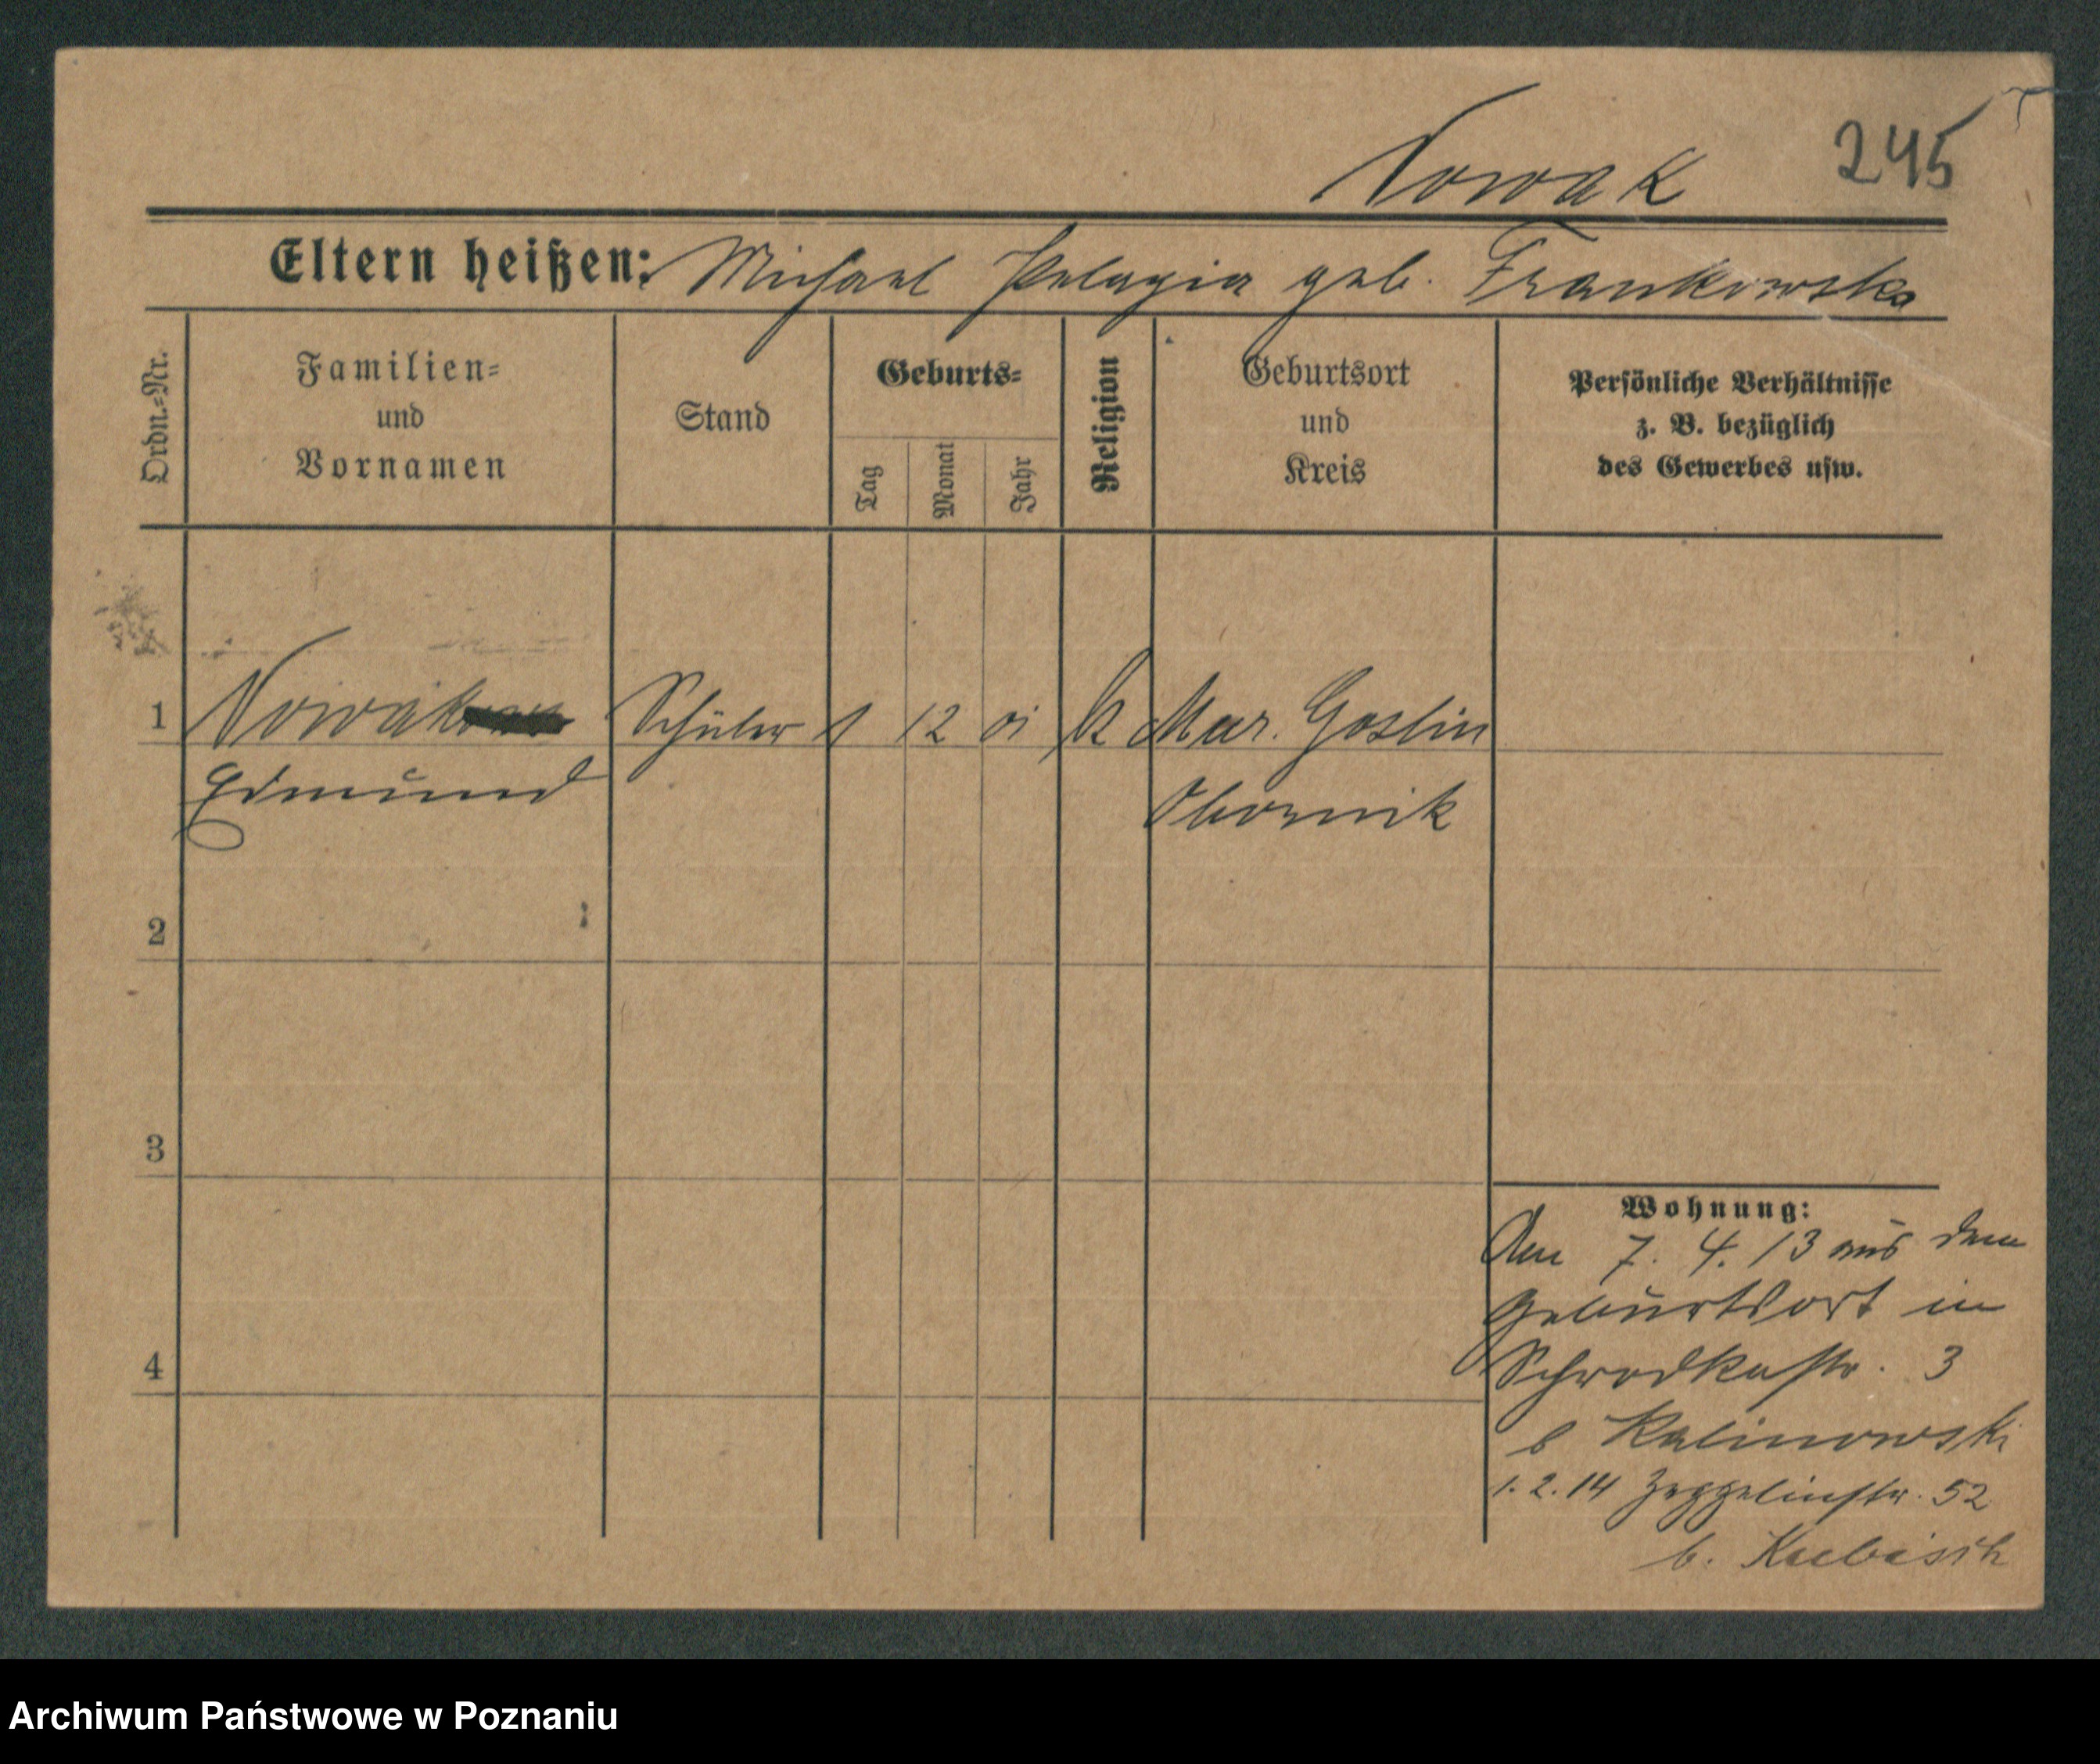 Nowak 245
Eltern heißen: Michael Pelagia geb. Frankowska
Ordn.-Nr.
Familien-
und
Vornamen
Stand
Geburts-
Tag
Monat
Jahr
Religion
Geburtsort
und
Kreis
Persönliche Verhältnisse
z. B. bezüglich
des Gewerbes usw.
1 Nowak Schüler 1 12 01 k Mur. Goslin
Edmund Obornik
2
3
4
Wohnung:
Am 7. 4. 13 aus dem
Geburtsort in
Schrodkastr. 3
b Kalinowski
1. 2. 14 Zeppelinstr. 52
b. Kubisch
Archiwum Państwowe w Poznaniu